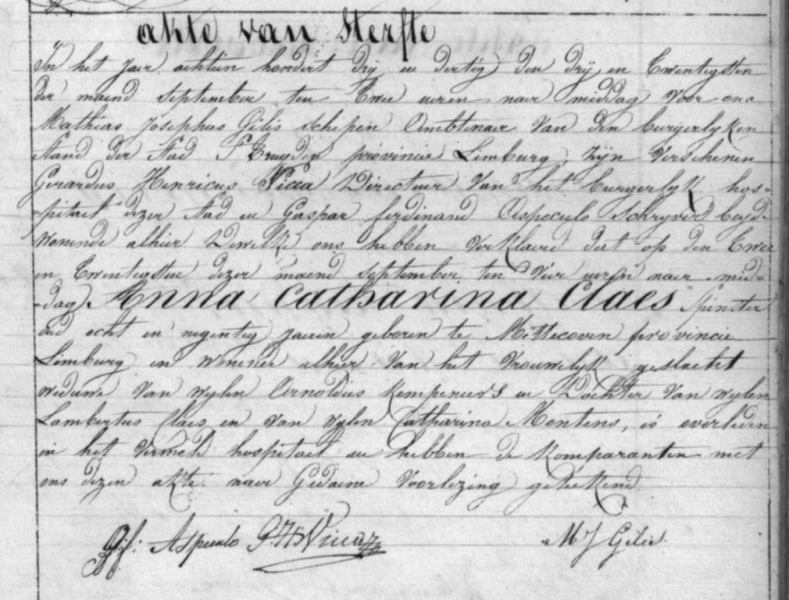 akte van Sterfte
In het Jaar achtien hondert drij en dertig den drij en Twentigsten
der maend September ten Twee uren naer middag voor ons
Mathias Josephus Gilis schepen Ambtenaer van den burgerlyken
stand der stad St Truyden provincie Limburg, zijn verschenen
Gerardus Henricus Vicca Directeur van het burgerlyk hos-
pitael dezer stad en Gaspar ferdinand Aspeculo Schryver beyde
Wonende alhier Dewelke ons hebben verklaerd dat op den Twee
en Twentigsten dezer maend September ten vier uren naer mid-
dag, Anna Catharina Claes Spinster
oud acht en negentig jaeren geboren te Mettecoven provincie
Limburg en wonende alhier van het vrouwelyk geslacht
weduwe van wylen Arnoldus Kempeneers en Dochter van wylen
Lambertus Claes en van wylen Catharina Montens, is overleden
in het vermeld hospitael en hebben de komparanten met
ons dezen akte naer Gedaene Voorlezing geteekend
Aspeculo G. H. Vicca
M J Gilis